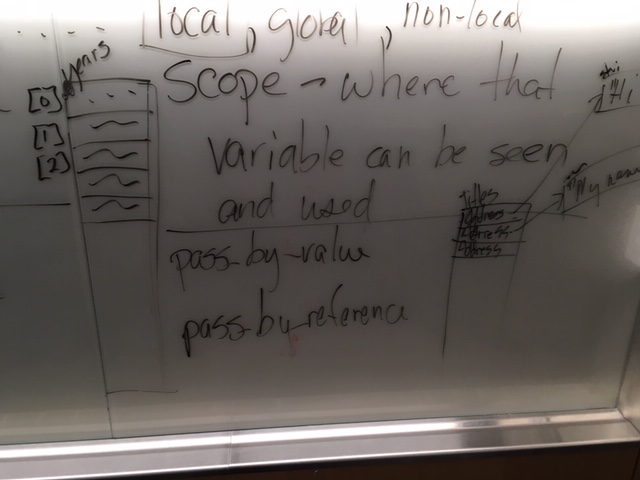 local, global, non-local
years
Scope - where that
[0]
[1]
variable can be seen
[2]
and used
titles
Address
Address
Address
"Hi
"My name
pass-by-value
pass-by-reference